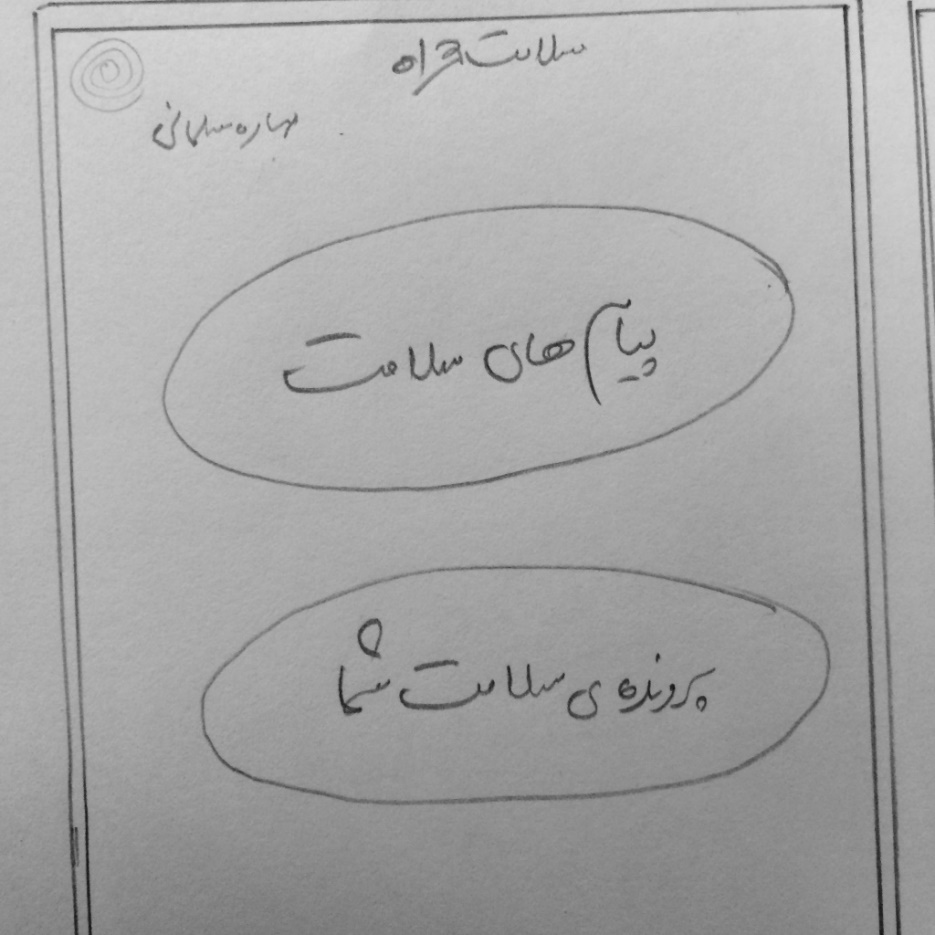 سلامت همراه
بهاره سلمانی
پیام‌های سلامت
پرونده‌ی سلامت شما